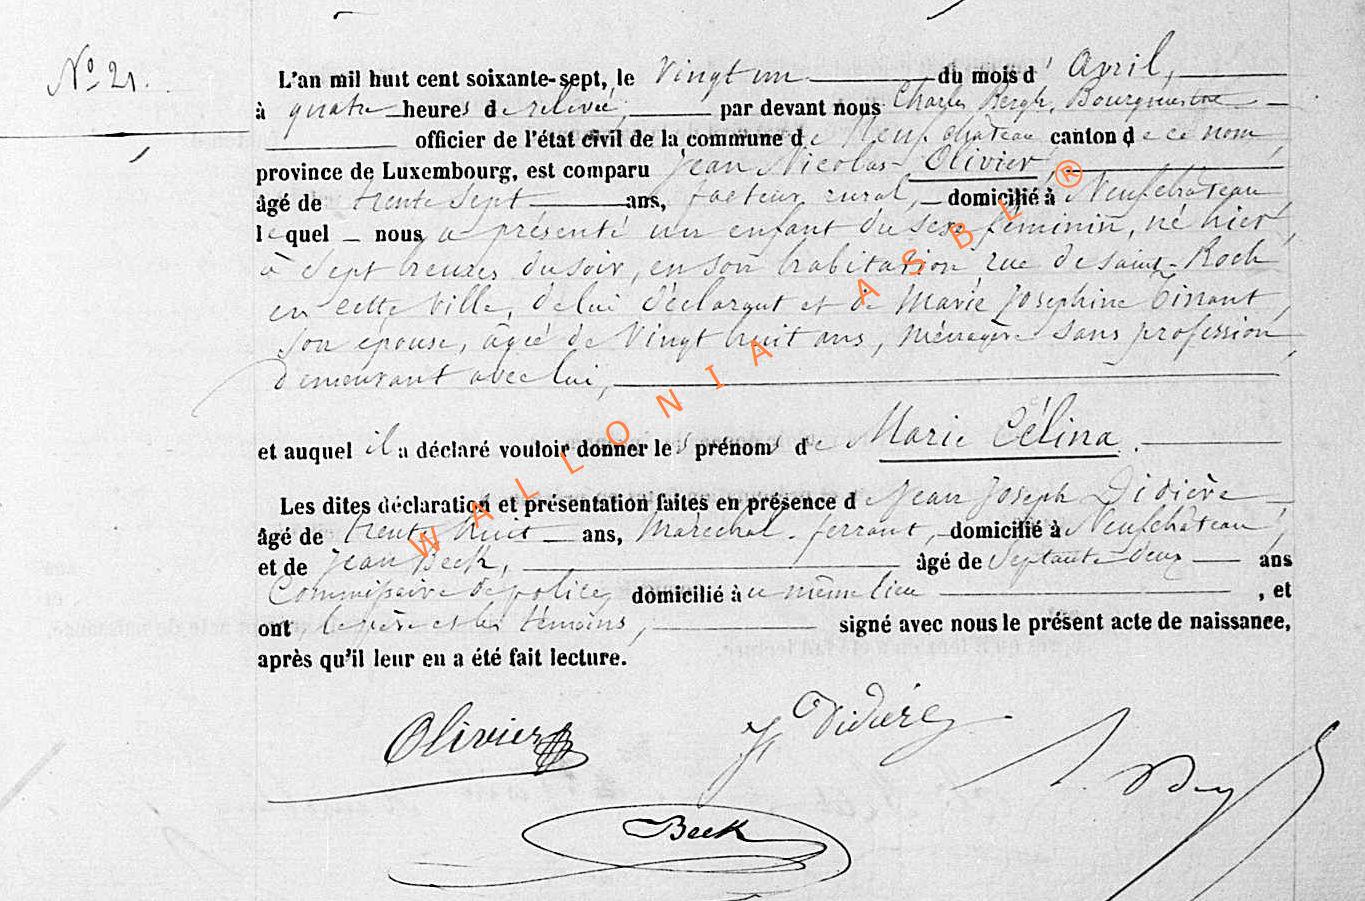 N° 21.
L'an mil huit cent soixante-sept, le Vingt un du mois d'April,
à quatre heures de relevée, par devant nous Charles Bergh, Bourgmestre
officier de l'état civil de la commune de Neufchâteau canton de ce nom
province de Luxembourg, est comparu Jean Nicolas Olivier,
âgé de trente sept ans, facteur rural, domicilié à Neufchâteau
lequel nous a présenté un enfant du sexe féminin, né hier,
à sept heures du soir, en son habitation rue de saint-Roch
en cette ville, de lui déclarant et de Marie Josephine Tinant,
son épouse, âgée de Vingt huit ans, ménagère sans profession,
demeurant avec lui,
et auquel il a déclaré vouloir donner les prénoms de Marie Célina.
Les dites déclaration et présentation faites en présence de Jean Joseph Didière
âgé de trente huit ans, Marechal-ferrant, domicilié à Neufchâteau,
et de Jean Beck, âgé de septante deux ans
Commissaire de police, domicilié au même lieu, et
ont le père et les témoins, signé avec nous le présent acte de naissance,
après qu'il leur en a été fait lecture.
Olivier
J J Didière
Beck
WALLONIA ASBL ®